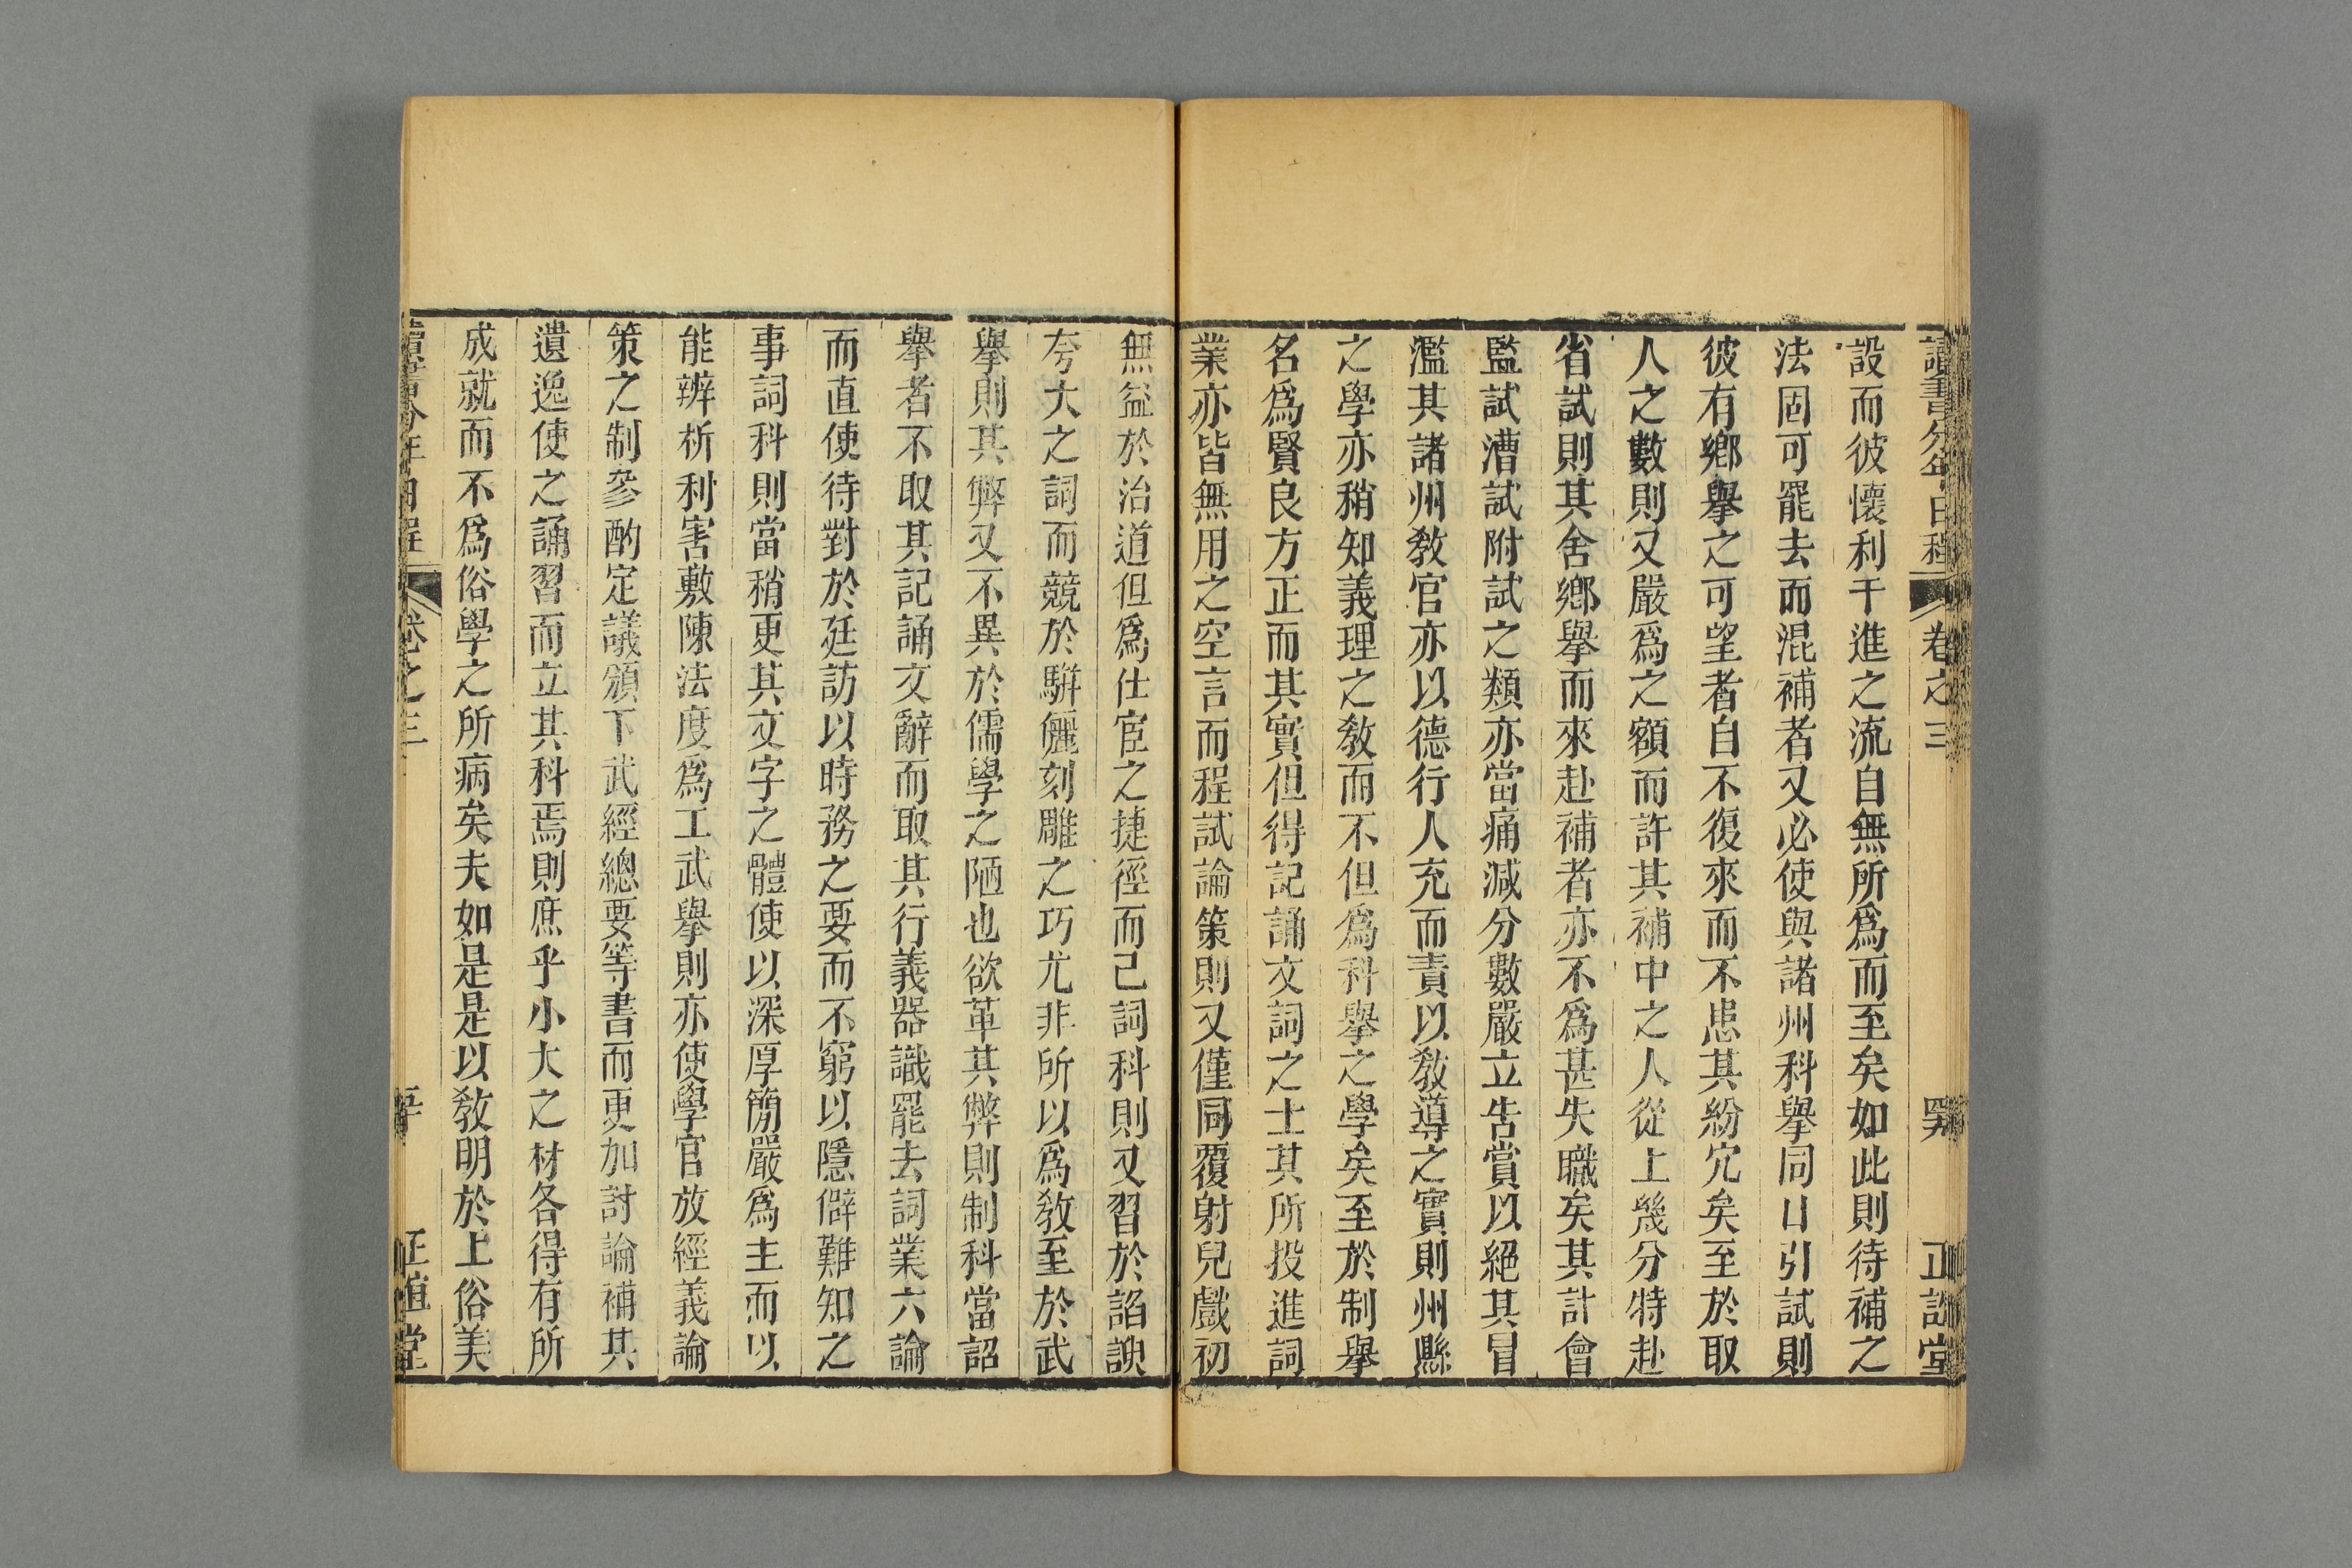 讀書分年日程 卷之三 正誼堂
設而彼懷利干進之流自無所爲而至矣如此則待補之
法固可罷去而混補者又必使與諸州科舉同日引試則
彼有鄉舉之可望者自不復來而不患其紛冗矣至於取
人之數則又嚴爲之額而許其補中之人從上幾分特赴
省試則其舍鄉舉而來赴補者亦不爲甚失職矣其計會
監試漕試附試之類亦當痛減分數嚴立告賞以絕其冒
濫其諸州敎官亦以德行人充而責以敎導之實則州縣
之學亦稍知義理之敎而不但爲科舉之學矣至於制舉
名爲賢良方正而其實但得記誦文詞之士其所投進詞
業亦皆無用之空言而程試論策則又僅同覆射兒戲初
無益於治道但爲仕宦之捷徑而已詞科則又習於諂諛
夸大之詞而競於駢儷刻雕之巧尤非所以爲敎至於武
舉則其弊又不異於儒學之陋也欲革其弊則制科當詔
舉者不取其記誦文辭而取其行義器識罷去詞業六論
而直使待對於廷訪以時務之要而不窮以隱僻難知之
事詞科則當稍更其文字之體使以深厚簡嚴爲主而以
能辨析利害敷陳法度爲工武舉則亦使學官放經義論
策之制參酌定議頒下武經總要等書而更加討論補其
遺逸使之誦習而立其科焉則庶乎小大之材各得有所
成就而不爲俗學之所病矣夫如是是以敎明於上俗美
讀書分年日程 卷之三 正誼堂